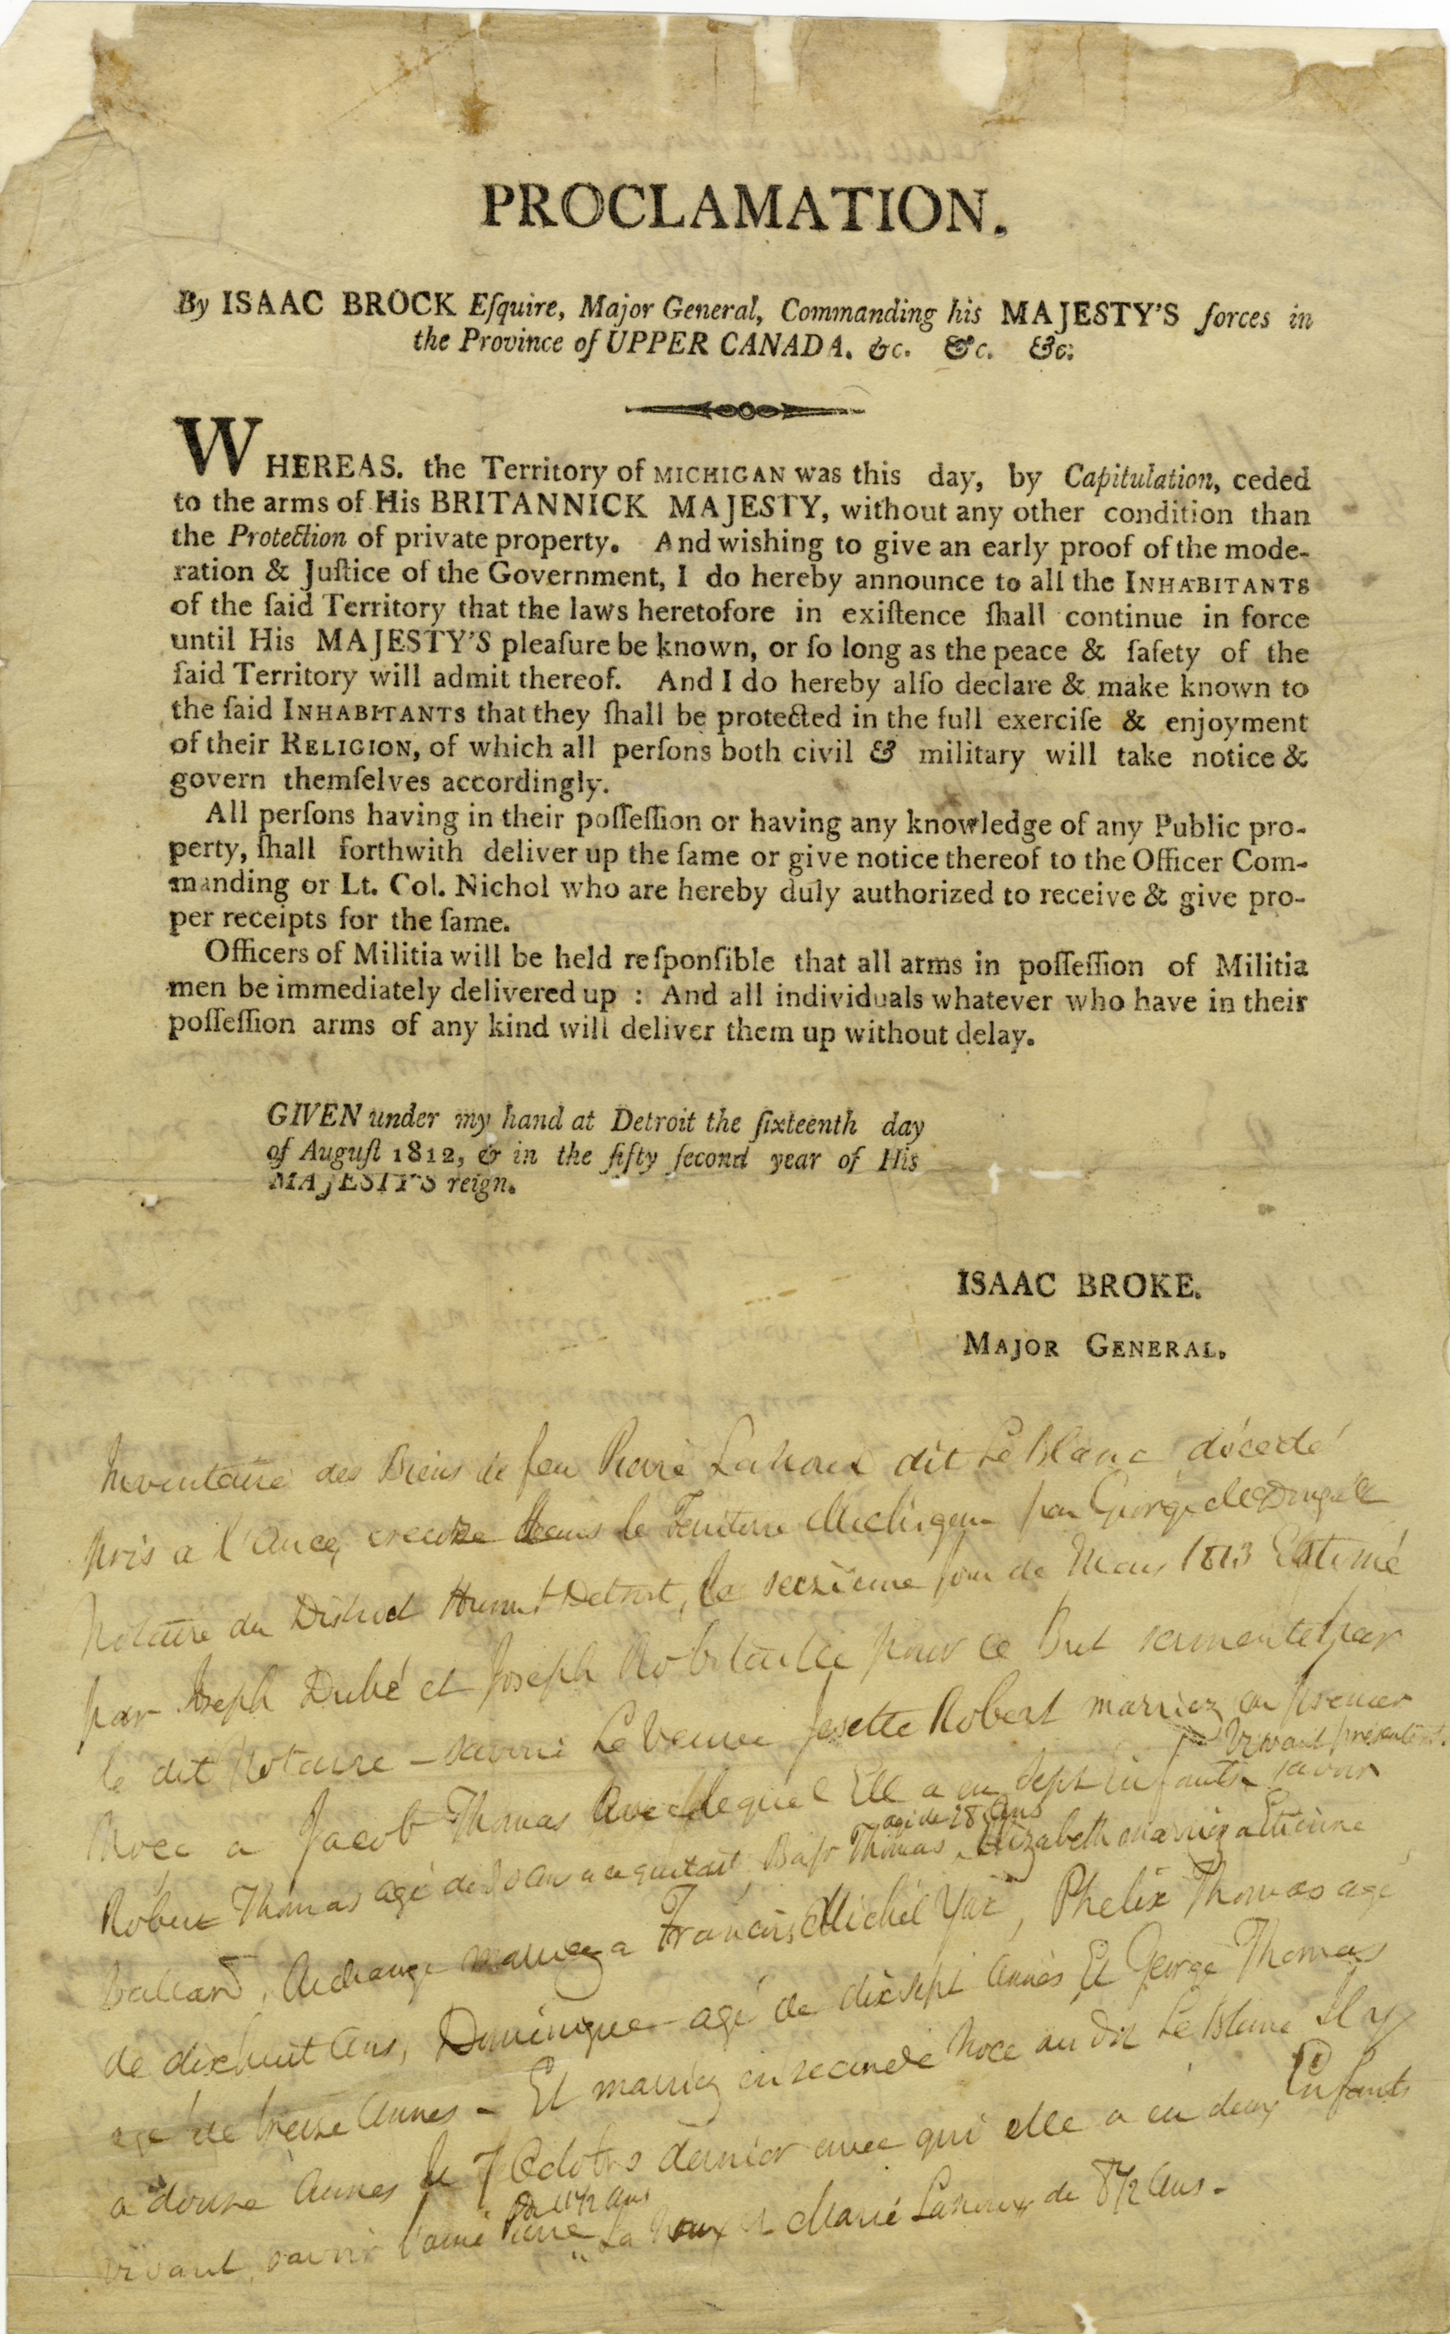 PROCLAMATION.
By ISAAC BROCK Eſquire, Major General, Commanding his MAJESTY'S forces in
the Province of UPPER CANADA. &c. &c. &c.
WHEREAS. the Territory of MICHIGAN was this day, by Capitulation, ceded
to the arms of His BRITANNICK MAJESTY, without any other condition than
the Protection of private property. And wishing to give an early proof of the mode-
ration & Juſtice of the Government, I do hereby announce to all the INHABITANTS
of the ſaid Territory that the laws heretofore in exiſtence ſhall continue in force
until His MAJESTY'S pleaſure be known, or ſo long as the peace & ſafety of the
ſaid Territory will admit thereof. And I do hereby alſo declare & make known to
the ſaid INHABITANTS that they ſhall be protected in the full exerciſe & enjoyment
of their RELIGION, of which all perſons both civil & military will take notice &
govern themſelves accordingly.
All perſons having in their poſſeſſion or having any knowledge of any Public pro-
perty, ſhall forthwith deliver up the ſame or give notice thereof to the Officer Com-
manding or Lt. Col. Nichol who are hereby duly authorized to receive & give pro-
per receipts for the ſame.
Officers of Militia will be held reſponſible that all arms in poſſeſſion of Militia
men be immediately delivered up : And all individuals whatever who have in their
poſſeſſion arms of any kind will deliver them up without delay.
GIVEN under my hand at Detroit the ſixteenth day
of Auguſt 1812, & in the fifty ſecond year of His
MAJESTY'S reign.
ISAAC BROKE.
MAJOR GENERAL.
Inventaire des Biens de feu Pierre Lanoux dit Le Blanc décedé
pris a l'Ance creuze dans le Territoire Michigan par George McDougall
Notaire du District Huron & Detroit, le seizieme jour de Mars 1813 Estimé
par Joseph Dubé et Joseph Robitaille pour ce But sermenté par
le dit Notaire - savoir La Veuve Josette Robert marriez en premier
Noce a Jacob Thomas Avec lequel Elle a eu sept infants vivant présentemt. savoir
Robert Thomas agé de ans Bapt Thomas agé de 28 Ans, Elizabeth marriez a Etienne
Archange marriez a Francis Michel Yax, Phelix Thomas agé
de dixhuit Ans, Dominique agé de dixsept Années Et George Thomas
agé de treize Années - Et marriez en seconde Noce au dit Le Blanc Il y
a douze Années le 7 Octobre dernier avec qui elle a eu deux Enfants
vivant, savoir l'ainé Pierre Lanoux de 11½ ans & Marie Lanoux de 8½ Ans -